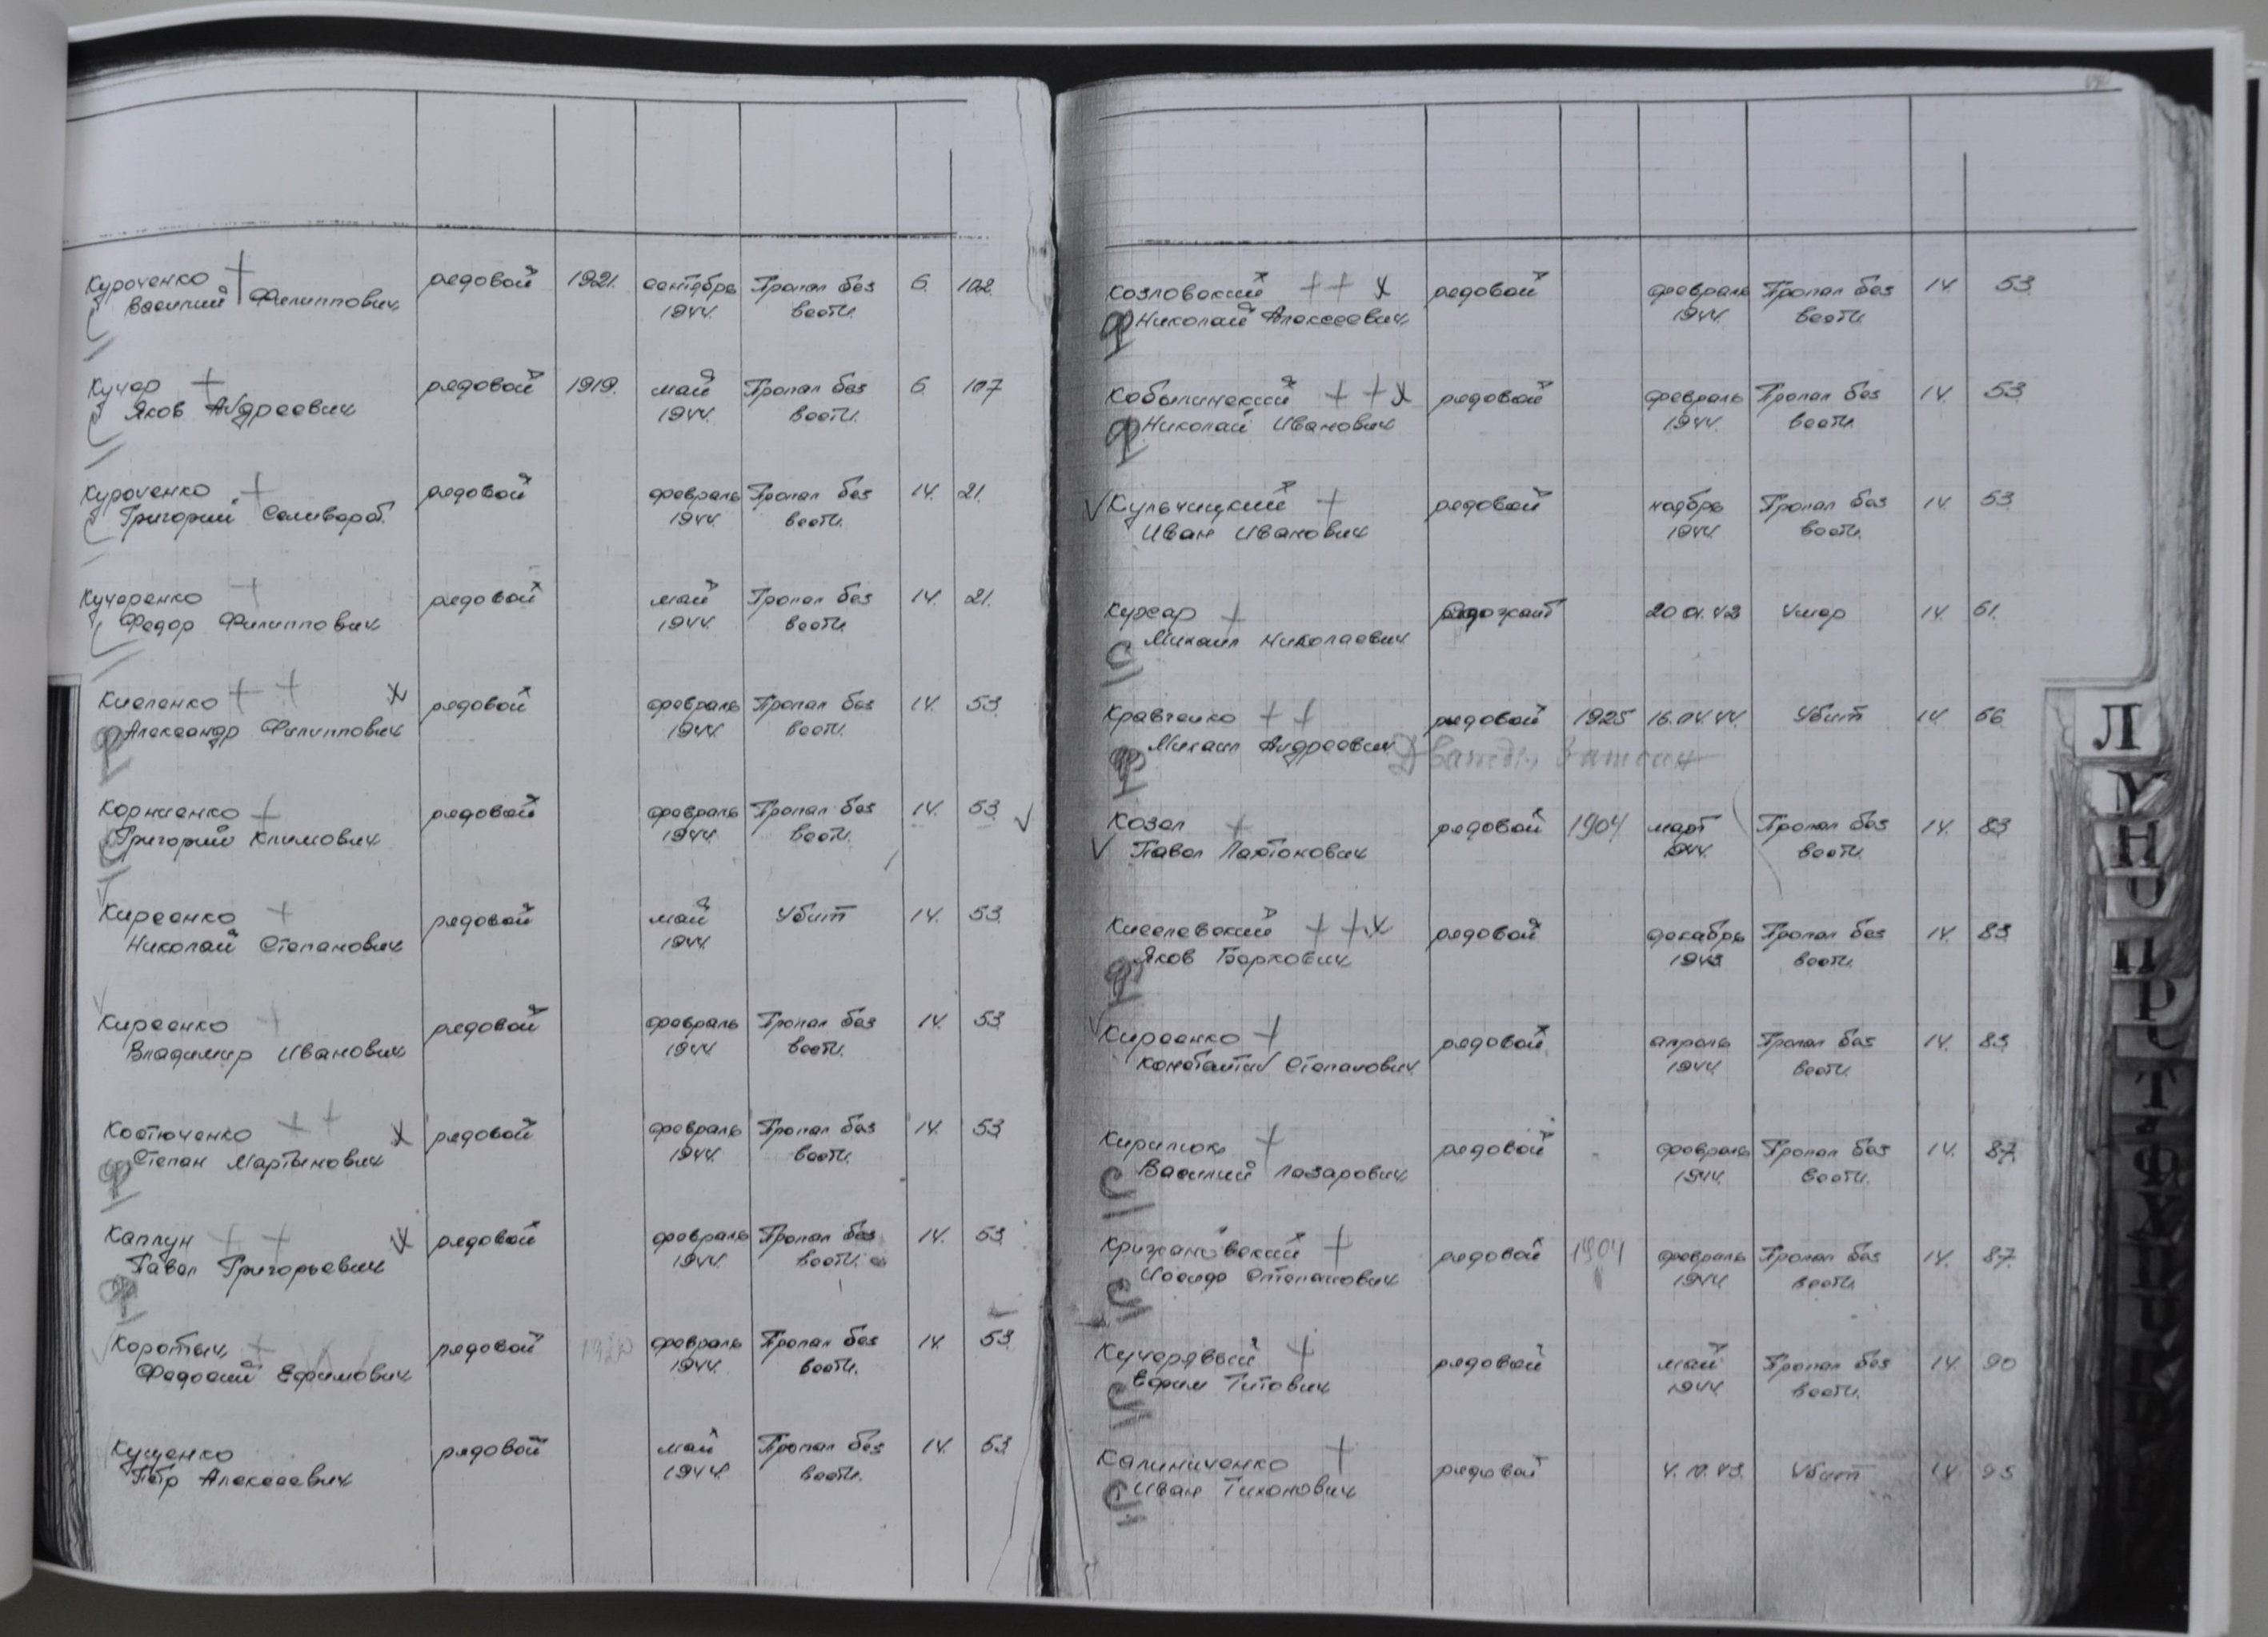 Куроченко рядовой 1921. сентябрь Пропал без 6. 102.
Василий Филиппович 1944. вести.
Кучер рядовой 1919. май Пропал без 6 107
Яков Андреевич 1944. вести.
Куроченко рядовой февраль Пропал без 14. 21.
Григорий Селиверст. 1944. вести.
Кучеренко рядовой май Пропал без 14. 21.
Федор Филиппович 1944. вести.
Киеленко рядовой февраль Пропал без 14. 53.
Александр Филиппович 1944. вести.
Корниенко рядовой февраль Пропал без 14. 53
Григорий Климович 1944. вести.
Киреенко рядовой май Убит 14. 53.
Николай Степанович 1944.
Киреенко рядовой февраль Пропал без 14. 53
Владимир Иванович 1944 вести.
Костюченко рядовой февраль Пропал без 14. 53
Степан Мартынович 1944. вести.
Каплун рядовой февраль Пропал без 14. 53
Павел Григорьевич 1944. вести.
Коротыч рядовой февраль Пропал без 14. 53
Федосий Ефимович 1944. вести.
Кущенко рядовой май Пропал без 14. 53
Пётр Алексеевич 1944 вести.
Козловский рядовой февраль Пропал без 14 53
Николай Алексеевич 1944. вести.
Кобылинский рядовой февраль Пропал без 14. 53
Николай Иванович 1944. вести.
Кульчицкий рядовой ноябрь Пропал без 14. 53
Иван Иванович 1944. вести.
Кухар 20.01.43 Умер 14. 61.
Михаил Николаевич
Кравченко рядовой 1925 16.04.44. Убит 14 66
Михаил Андреевич
Дважды записан
Козел рядовой 1904 март Пропал без 14. 83
Павел Ларионович 1944. вести.
Киселевский рядовой декабрь Пропал без 14. 83
Яков Беркович 1943 вести.
Киреенко рядовой апрель Пропал без 14. 83
Константин Степанович 1944. вести.
Кирилюк рядовой февраль Пропал без 14. 87
Василий Лазарович 1944. вести.
Крижановский рядовой 1904 февраль Пропал без 14. 87.
Иосиф Степанович 1944. вести.
Кучерявый рядовой май Пропал без 14. 90
Ефим Титович 1944 вести.
Калиниченко рядовой Убит 14. 95
Иван Тихонович
Л
У
Н
О
П
Р
С
Т
Ф
Х